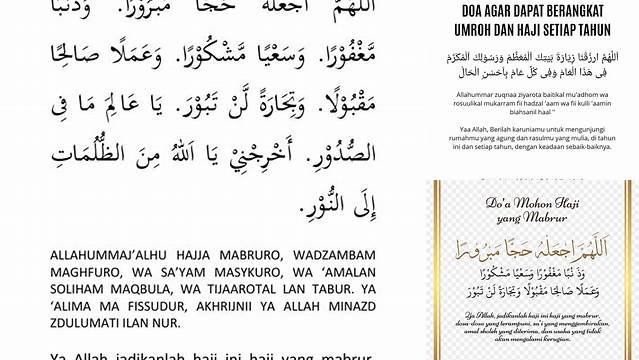 اللَّهُمَّ اجْعَلْهُ حَجًّا مَبْرُوْرًا. وَذَنْبًا
مَّغْفُوْرًا. وَسَعْيًا مَّشْكُوْرًا. وَعَمَلًا صَالِحًا
مَقْبُوْلًا. وَتِجَارَةً لَّنْ تَبُوْرَ. يَا عَالِمَ مَا فِى
الصُّدُوْرِ. أَخْرِجْنِيْ يَا اَللهُ مِنَ الظُّلُمَاتِ
إِلَى النُّوْرِ.
ALLAHUMMAJ'ALHU HAJJA MABRURO, WADZAMBAM
MAGHFURO, WA SA'YAM MASYKURO, WA 'AMALAN
SOLIHAM MAQBULA, WA TIJAAROTAL LAN TABUR. YA
'ALIMA MA FISSUDUR, AKHRIJNII YA ALLAH MINAZD
ZDULUMATI ILAN NUR.
Ya Allah jadikanlah haji ini haji yang mabrur,
DOA AGAR DAPAT BERANGKAT
UMROH DAN HAJI SETIAP TAHUN
اَللَّهُمَّ ارْزُقْنَا زِيَارَةَ بَيْتِكَ الْمُعَظَّمِ وَرَسُوْلِكَ الْمُكَرَّمِ
فِى هَذَا الْعَامِ وَفِى كُلِّ عَامٍ بِأَحْسَنِ الْحَالِ
Allahummar zuqnaa ziyarota baitikal mu'adhom wa
rosuulikal mukarram fii hadzal 'aam wa fii kulli 'aamin
biahsanil haal "
Yaa Allah, Berilah karuniamu untuk mengunjungi
rumahmu yang agung dan rasulmu yang mulia, di tahun
ini dan setiap tahun, dengan keadaan sebaik-baiknya.
Do'a Mohon Haji
yang Mabrur
اَللَّهُمَّ اجْعَلْهُ حَجًّا مَبْرُوْرًا
وَذَنْبًا مَغْفُوْرًا وَسَعْيًا مَشْكُوْرًا
وَعَمَلًا صَالِحًا مَقْبُوْلًا وَتِجَارَةً لَنْ تَبُوْرَ
Ya Allah, jadikanlah haji ini haji yang mabrur,
dosa-dosa yang terampuni, sa'i yang menggembirakan,
amal sholeh yang diterima, dan usaha yang tidak
akan mengalami kerugian.